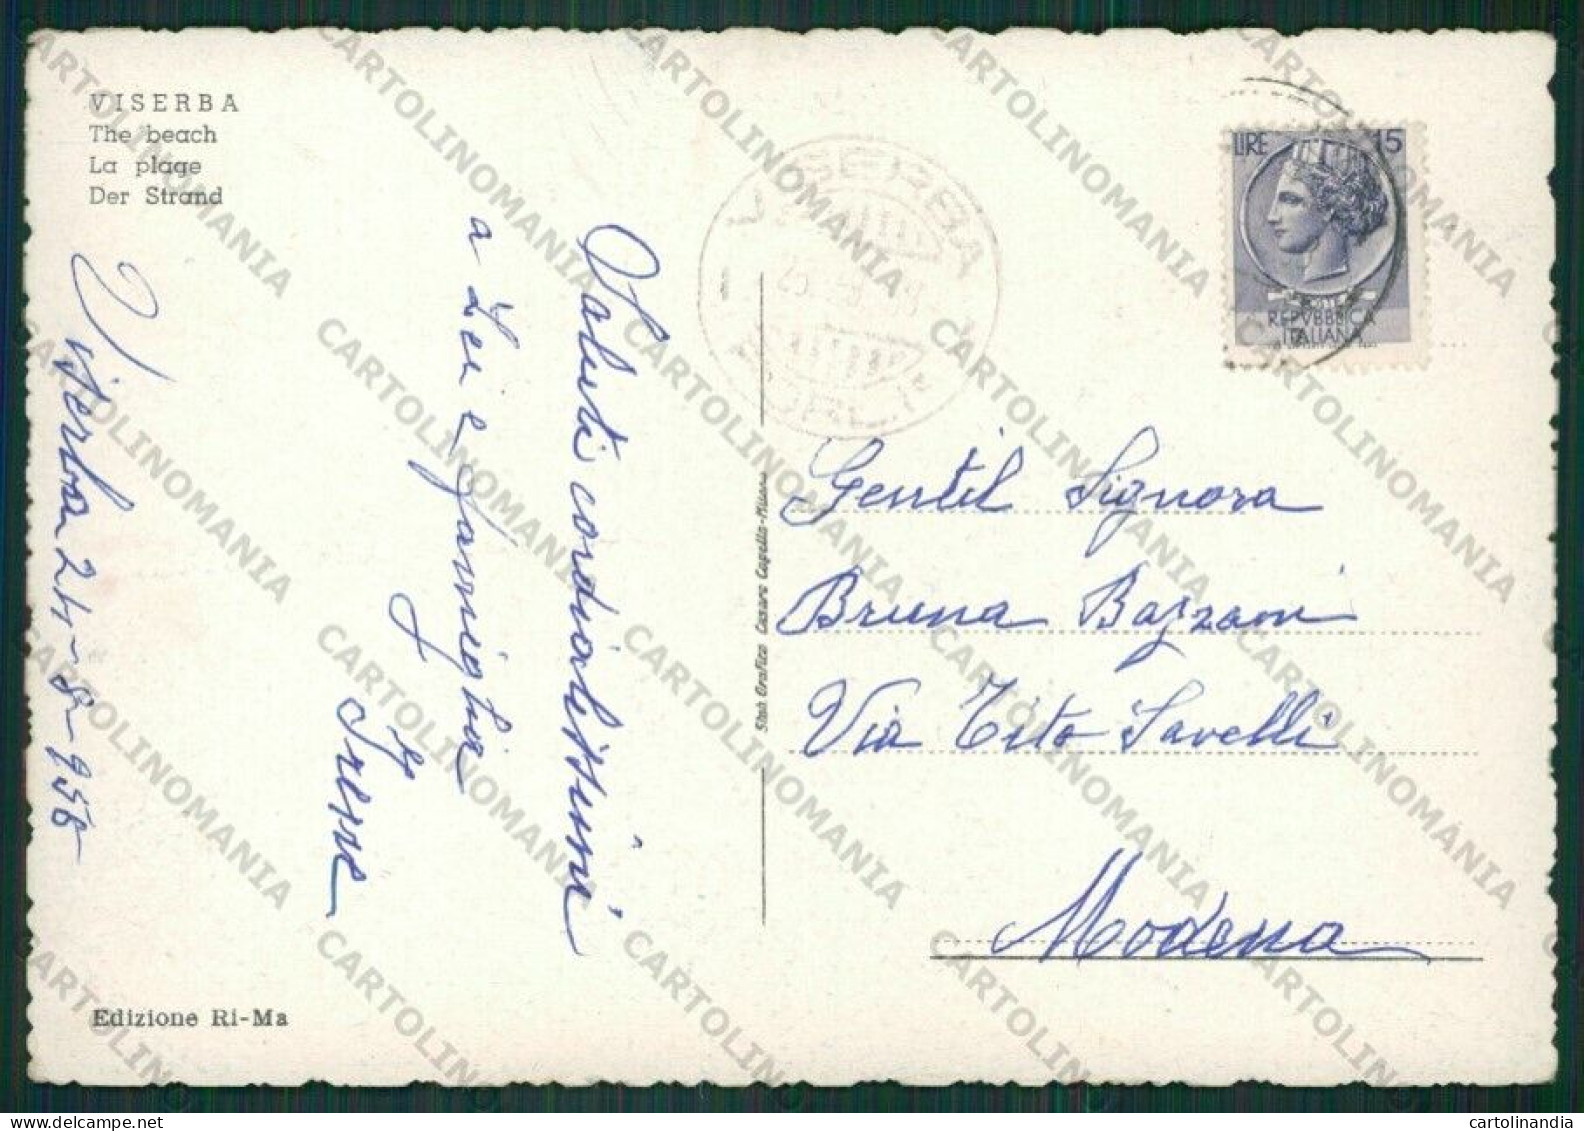 VISERBA
The beach
La plage
Der Strand
Viserba 24-8-956
Saluti cordialissimi
a Lei e famiglia
Irene
Edizione Ri-Ma
Stab Grafico Cesare Capello-Milano
VISERBA
LIRE 15
POSTE
REPVBBLICA
ITALIANA
Gentil Signora
Bruna Bazzani
Via Tito Savelli
Modena
CARTOLINOMANIA
cartolinandia